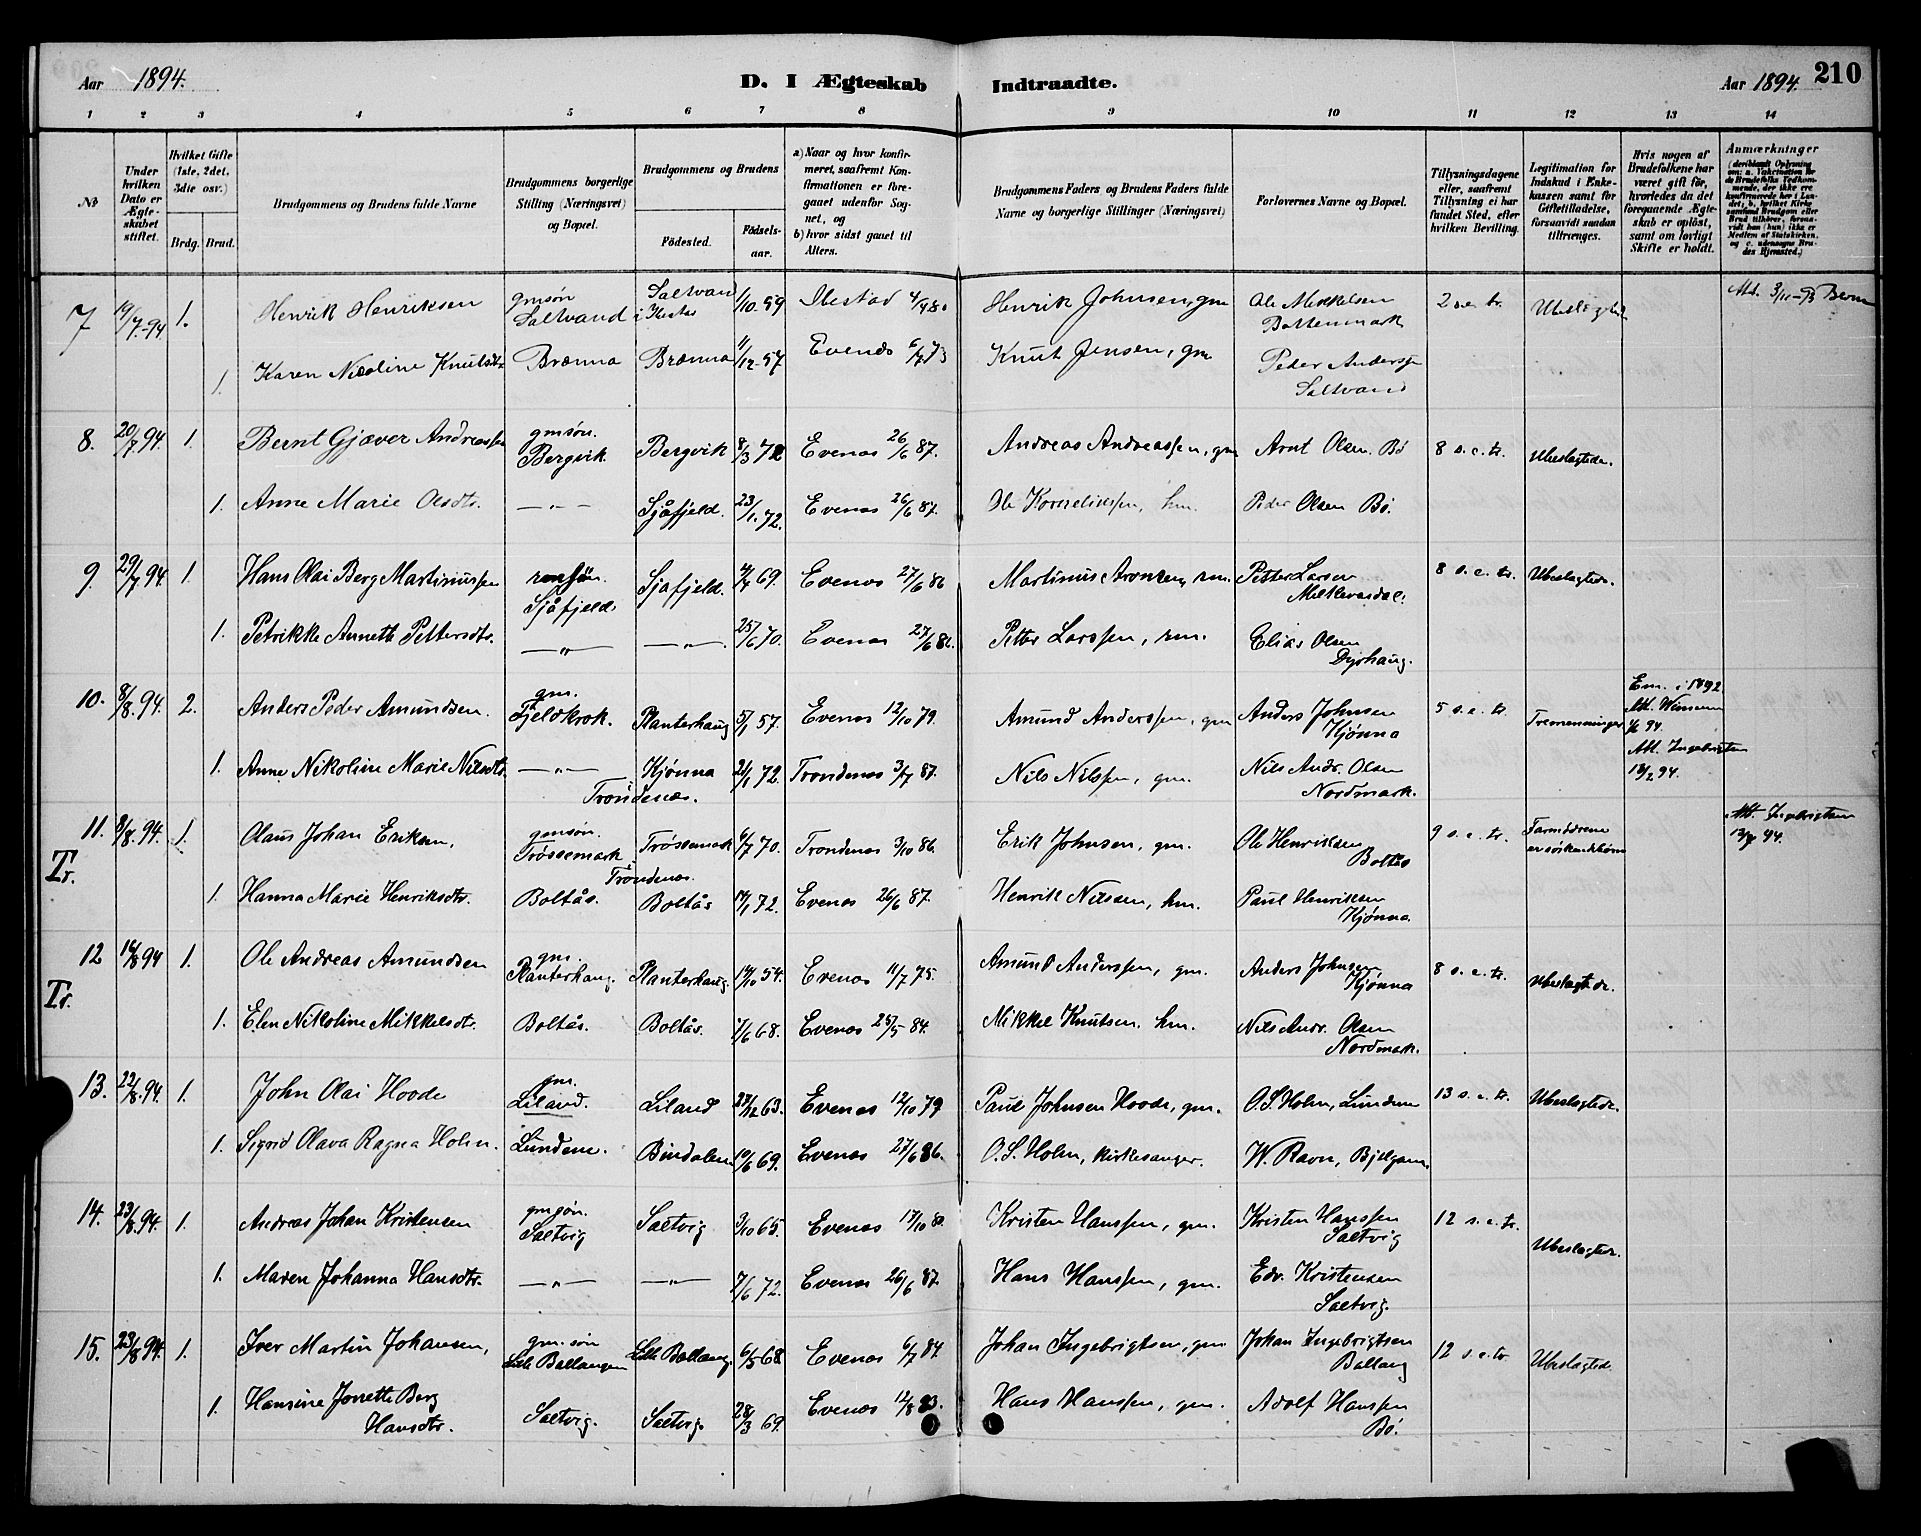 Aar 1894. D. I Ægteskab Indtraadte. Aar 1894. 210
1 2 3 4 5 6 7 8 9 10 11 12 13 14
No
Under hvilken Dato er Ægteskabet stiftet.
Hvilket Gifte (1ste, 2det, 3die osv.)
Brdg. Brud.
Brudgommens og Brudens fulde Navne
Brudgommens borgerlige Stilling (Næringsvei) og Bopæl.
Brudgommens og Brudens
Fødested. Fødselsaar.
a) Naar og hvor konfirmeret, saafremt Konfirmationen er foregaaet udenfor Sognet, og
b) hvor sidst gaaet til Alters.
Brudgommens Faders og Brudens Faders fulde Navne og borgerlige Stillinger (Næringsvei)
Forlovernes Navne og Bopæl.
Tillysningsdagene eller, saafremt Tillysning ei har fundet Sted, efter hvilken Bevilling.
Legitimation for Indskud i Enkekassen samt for Giftetilladelse, forsaavidt saadan tiltrænges.
Hvis nogen af Brudefolkene har været gift før, hvorledes da det foregaaende Ægteskab er opløst, samt om lovligt Skifte er holdt.
Anmærkninger
7 19/7-94 1. Henrik Henriksen gmsøn Saltvand Saltvand i Ilestad 1/10-59 Ilestad 4/9 80 Henrik Johnsen, gm Ole Mikkelsen Bottenmark 2 s. e. tr. Ubeslægted Att. 3/11-93
1. Karen Nicoline Knutsdtr Brænna Brænna 11/12-57 Evenes 6/7 73 Knut Jensen, gm Peder Anderss Saltvand
8. 20/7 94 1. Bernt Gjæver Andreassen gmsøn. Bergvik. Bergvik 8/3 72 Evenes 26/6 87. Andreas Andreassen, gm Arnt Olsen. Bø 8 s. e. tr. Ubeslægtede.
1. Anne Marie Olsdtr. — „ — Sjåfjeld. 23/1. 72. Evenes 26/6 87. Ole Korneliussen, hm. Peder Olsen Bø.
9. 29/7 94 1. Hans Olai Berg Martinussen rmsøn. Sjåfjeld. Sjåfjeld. 4/4 69. Evenes 27/6 86 Martinus Aronsen, rm. Petter Larsen Melkevardal. 8 s. e. tr. Ubeslægtede.
1. Petrikke Anneth Pettersdtr. — „ — — „ — 25/6 70. Evenes 27/6 86. Petter Larssen, rm. Elias Olsen Dyrhaug.
10. 8/8. 94. 2. Anders Peder Amundsen. gm. Fjeldkrok. Planterhaug 5/1 57. Evenes 12/10 79. Amund Anderssen, gm Anders Johnsen Kjønna 5 s. e. tr. Tremenninger Em. i 1892 Att. 94. Att. Ingebrigtsen 18/2 94.
1. Anne Nikoline Marie Nilsdtr. — „ — Kjønna Trondenæs. 21/1 72. Trondenes 3/7 87. Nils Nilssen, gm. Nils Andr. Olsen Nordmark.
11. 8/8. 94. 1. Olaus Johan Eriksen, gmsøn. Trøssemark Trondenes. Trøssemark 6/7 70. Trondenes 3/10 86. Erik Johnsen, gm. Ole Henriksen Boltås 9 s. e. tr. Farmødrene er søskendebørn Att. Ingebrigtsen 94.
Tr.
1. Hanna Marie Henriksdtr. Boltås. Boltås 14/1 72. Evenes 26/6 87. Henrik Nilsen, hm. Paul Henriksen Kjønna.
12 14/8 94 1. Ole Andreas Amundsen gm. Planterhaug. Planterhaug. 14/10 54. Evenes 11/7 75. Amund Anderssen, gm. Anders Johnsen, Kjønna 8 s. e. tr. Ubeslægtede.
Tr.
1. Elen Nikoline Mikkelsdtr. Boltås. Boltås. 1/6 68. Evenes 25/5 84. Mikkel Knutsen. hm. Nils Andr. Olsen Nordmark.
13. 22/8. 94. 1. John Olai Hoode gm. Liland. Liland 27/12 63. Evenes 12/10 79 Paul Johnsen Hoode, gm. O. S. Holm, Lundene 13 s. e. tr. Ubeslægtede.
1. Sigrid Olava Ragna Holm. Lundene. Bindalen 10/6 69. Evenes 27/6 86. O. S. Holm, kirkesanger. W. Ravn, Bjellgam
14. 23/8. 94. 1. Andreas Johan Kristensen gmsøn. Saltvig Saltvig 3/10 65. Evenes 17/10 80. Kristen Hanssen, gm. Kristen Hanssen Saltvig 12 s. e. tr. Ubeslægtede.
1. Maren Johanna Hansdtr. — „ — — „ — 7/6 72. Evenes 26/6 87. Hans Hanssen, gm. Edv. Kristensen Saltvig.
15. 23/8 94. 1. Iver Martin Johansen, gm. søn Lille Ballangen Lille Ballang. 6/5 68. Evenes 6/7 84. Johan Ingebrigtsen, gm Johan Ingebrigtsen Ballang 12 s. e. tr. Ubeslægtede.
1. Hansine Jorette Berg Hansdtr. Saltvig. Saltvig. 28/3 69. Evenes 12/8 83. Hans Hanssen, gm. Adolf Hanssen Bø.